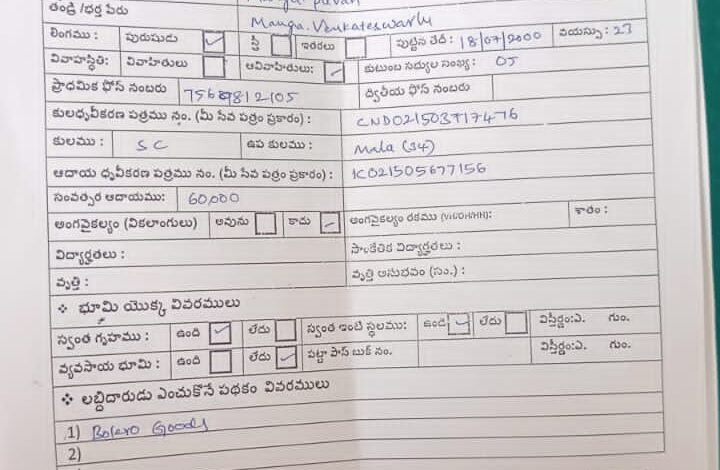 తండ్రి /భర్త పేరు Manga. Venkateswarlu
లింగము : పురుషుడు స్త్రీ ఇతరలు పుట్టిన తేది : 18/07/2000 వయస్సు : 23
వివాహస్థితి: వివాహితులు అవివాహితులు: కుటుంబ సభ్యుల సంఖ్య : 05
ప్రాధమిక ఫోన్ నంబరు ద్వితీయ ఫోన్ నంబరు
కులధృవీకరణ పత్రము నం. (మీ సేవ పత్రం ప్రకారం) :
కులము : SC ఉప కులము : Mala (34)
ఆదాయ ధృవీకరణ పత్రము నం. (మీ సేవ పత్రం ప్రకారం) : IC021505677156
సంవత్సర ఆదాయము: 60,000
అంగవైకల్యం (వికలాంగులు) అవును కాదు అంగవైకల్యం రకము (VH/OH/HH): శాతం :
విద్యార్హతలు : సాంకేతిక విద్యార్హతలు :
వృత్తి : వృత్తి అనుభవం (సం.) :
❖ భూమి యొక్క వివరములు
స్వంత గృహము : ఉంది లేదు స్వంత ఇంటి స్థలము: ఉంది లేదు విస్తీర్ణం:ఎ. గుం.
వ్యవసాయ భూమి : ఉంది లేదు పట్టా పాస్ బుక్ నం. విస్తీర్ణం:ఎ. గుం.
❖ లబ్దిదారుడు ఎంచుకొనే పథకం వివరములు
1) Bolero Goods
2)